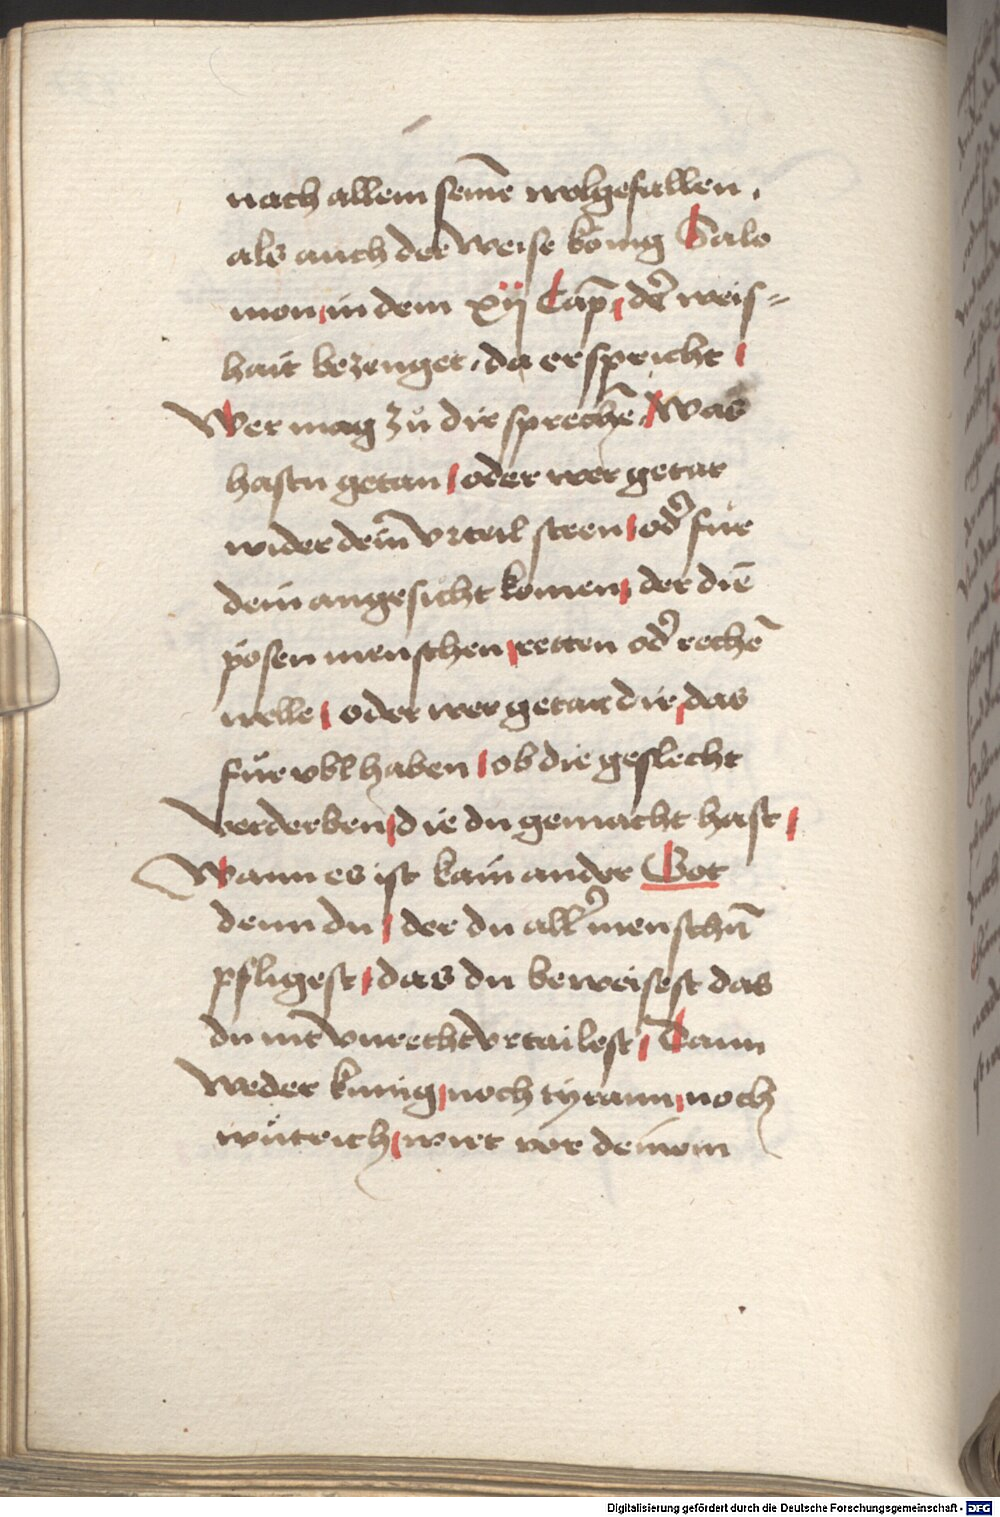 nach allem seinē wolgefallen .
als auch der weise kónig Salo
mon, in dem xij Cap̄, der̄ weis=
hait bezeuget, da er spricht |
Wer mag zů dir sprechē, Was
hastu getan | oder wer getar
wider dein̄ vrteil steen | od̾ fur
dein angesicht komen, der diē
pósen menschen, retten od̾ rechē
welle | oder wer getar dir, das
fúr vbl haben | ob die geslecht
verderben, die du gemacht hast |
Wann es ist kain ander Got
denn du | der du all̾ menschn̄
pfligest, das du beweisest das
du nit vnrecht vrtailest | Dann
weder kunig, noch tyrann, noch
wútrich, wirt vor deinem
Digitalisierung gefördert durch die Deutsche Forschungsgemeinschaft - DFG